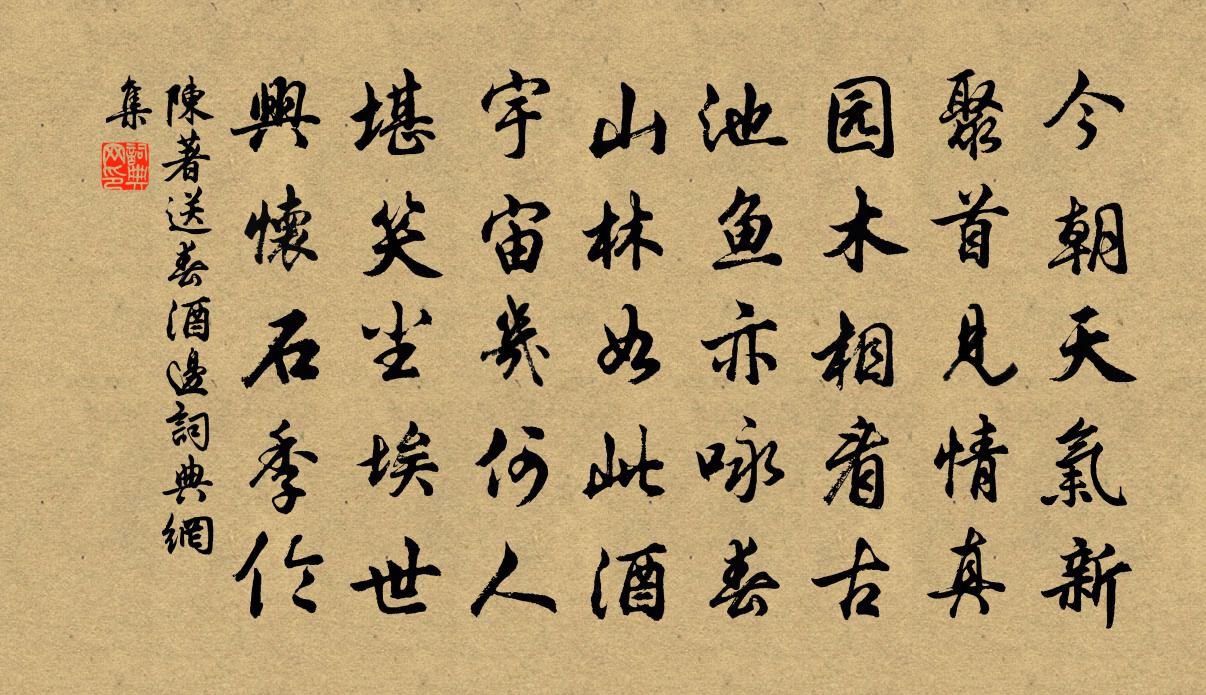 今朝天氣新
聚首見情真
园木相看古
池鱼亦咏春
山林如此酒
宇宙幾何人
堪笑尘埃世
興懷石季伦
陳著送春酒邊詞典網
集
詞典
网印